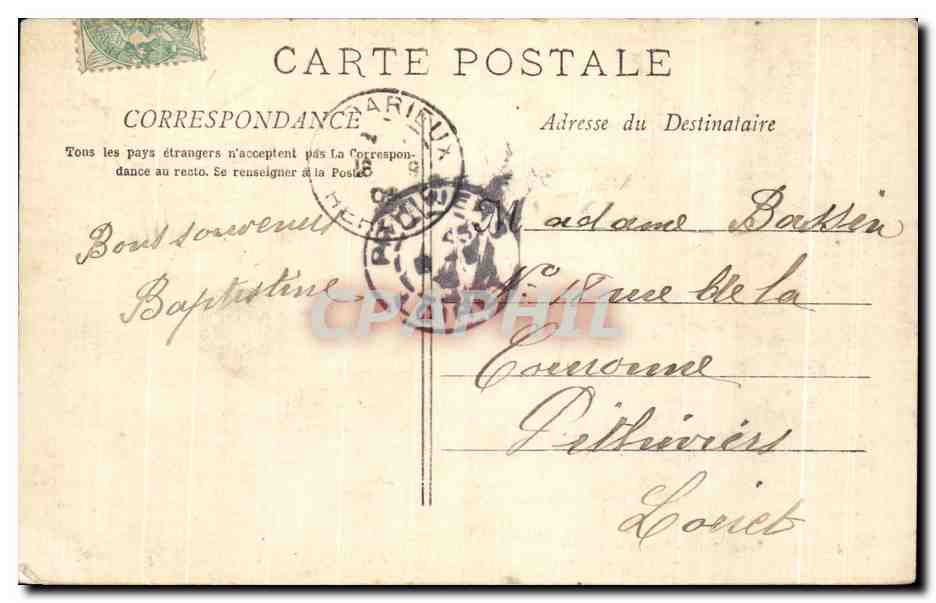 CARTE POSTALE
CORRESPONDANCE
Tous les pays étrangers n'acceptent pas La Correspon-
dance au recto. Se renseigner à la Poste
Adresse du Destinataire
Bons souvenirs
Baptistine
Madame Bassin
N° 18 rue de la
Couronne
Pithiviers
Loiret
CPAPHIL